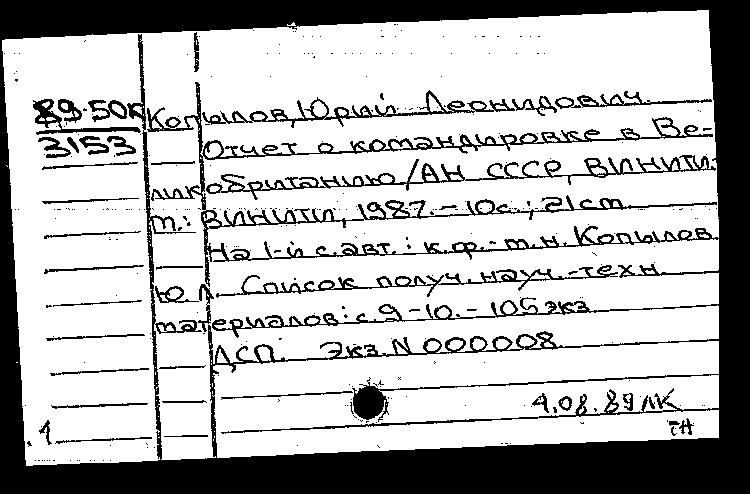 89-50к Копылов, Юрий Леонидович.
3153 Отчет о командировке в Ве-
ликобританию/АН СССР, ВИНИТИ.-
т.: ВИНИТИ, 1987.-10с.; 21ст.
На 1-й с.авт.: к.ф.-т.н. Копылов
Ю.Л. Список получ. науч.-техн.
материалов: с.9-10.-105экз
ДСП. Экз.N000008.
4.08.89ЛК
ТА
.1